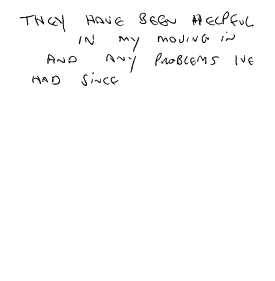 THEY HAVE BEEN HELPFUL
IN MY MOVING IN
AND ANY PROBLEMS I'VE
HAD SINCE